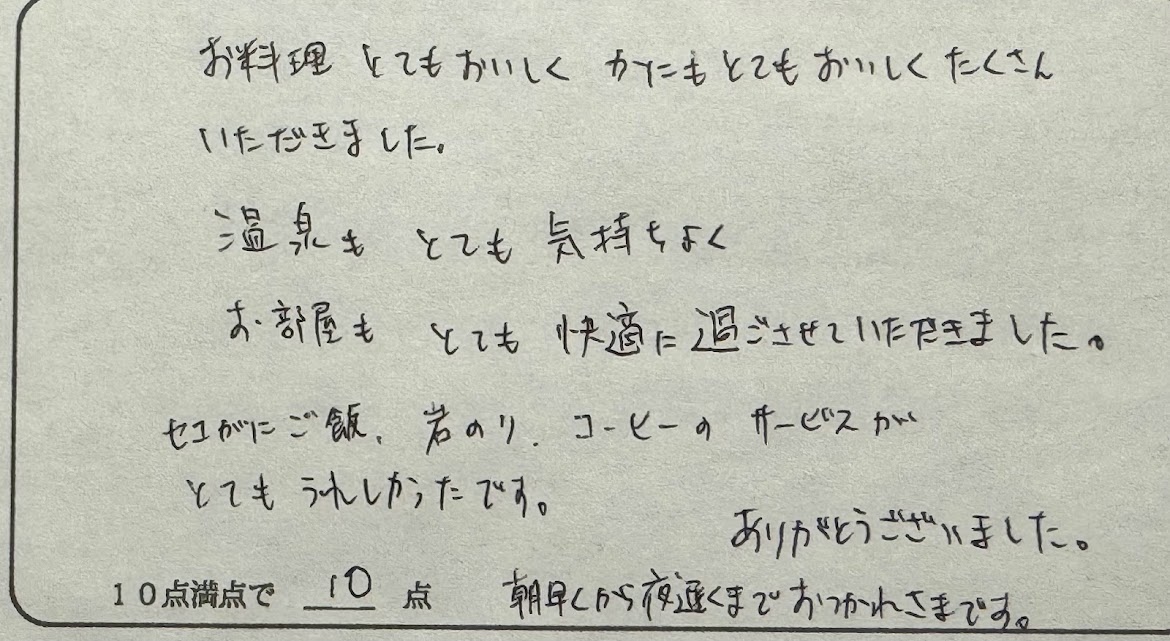 お料理 とても おいしく カニも とても おいしく たくさん
いただきました。
温泉も とても 気持ちよく
お部屋も とても 快適に 過ごさせていただきました。
セコがにご飯、岩のり、コーヒーの サービスが
とても うれしかったです。
ありがとうございました。
10点満点で 10 点 朝早くから夜遅くまでおつかれさまです。